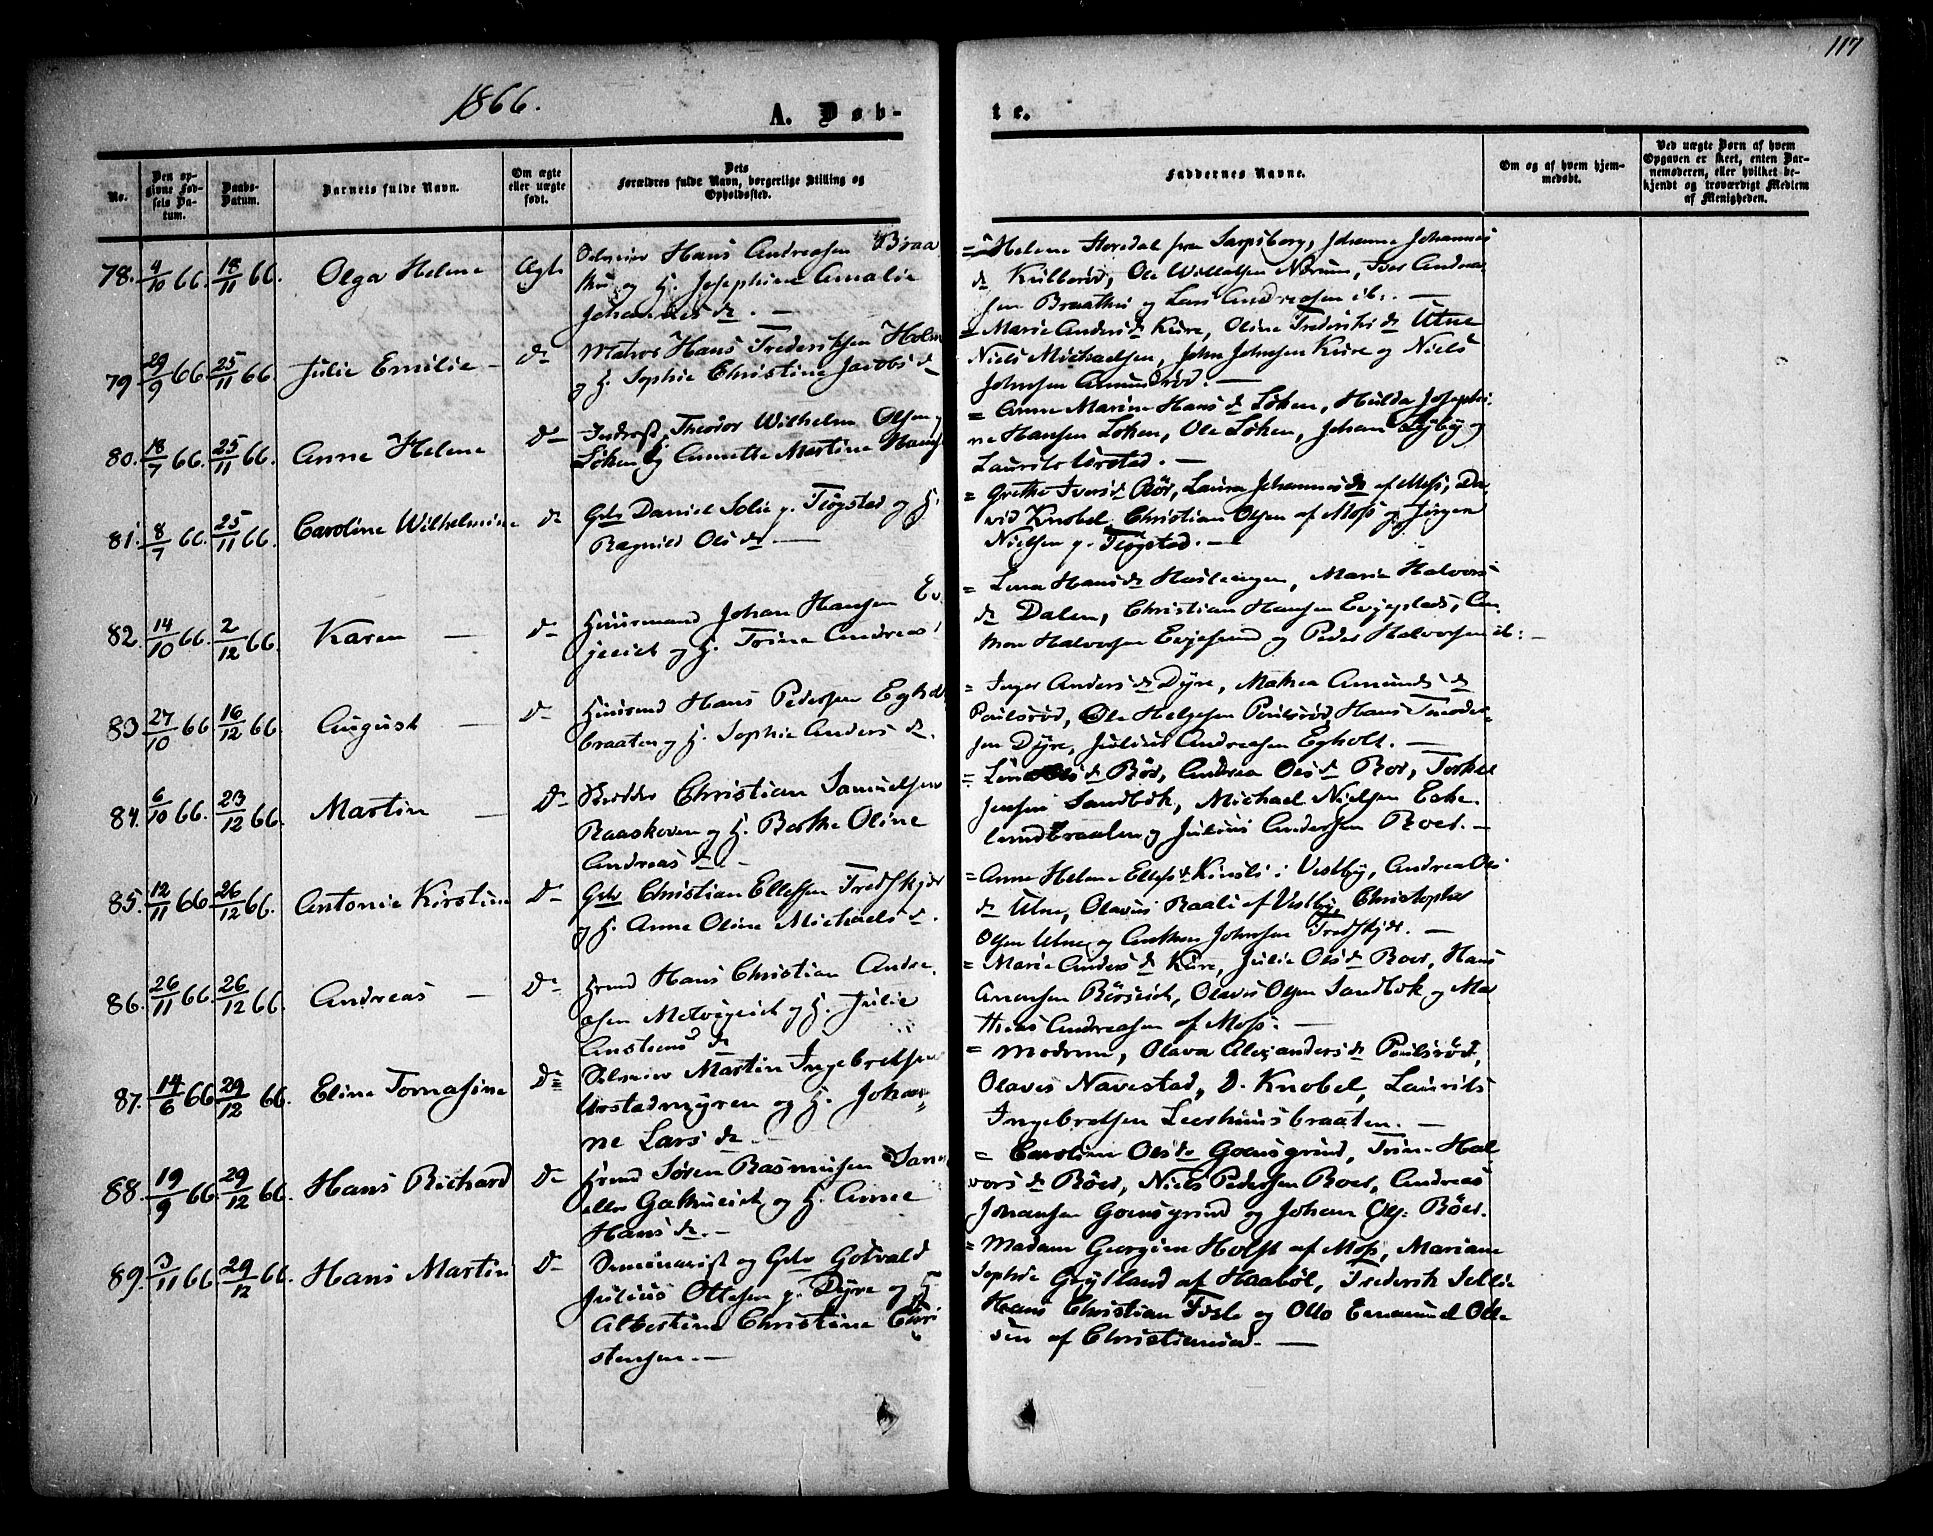 117
1866.
A. Døb-
te.
No.
Den opgivne Fødsels Datum.
Daabs-Datum.
Barnets fulde Navn.
Om ægte eller uægte født.
Dets Forældres fulde Navn, borgerlige Stilling og Opholdssted.
Faddernes Navne.
Om og af hvem hjemmedøbt.
Ved uægte Børn af hvem Opgaven er skeet, enten Barnemoderen, eller hvilket bekjendt og troværdigt Medlem af Menigheden.
78. 4/10 66. 18/11 66. Olga Helene Ægte
Hans Andreasen Braa
then og H. Josephine Amalie
Johannesdr. —
= Helene Storedal fra Sarpsborg, Johanne Johannes
dr. Kullerød, Ole Willalsen Nærum, Iver Andrea
sen Braathen og Lars Andreasen ib: —
79 29/9 66 25/11 66. Julie Emilie — Do
Matros Hans Frederiksen Holm
og H. Sophie Christine Jacobsdr.
= Marie Andersdr. Kure, Oline Frederiksdr. Utne
Niels Michaelsen, John Johnsen Kure og Niels
Johnsen Amundrød. —
80. 18/7 66. 25/11 66. Anne Helene Do
Inderst Theodor Wilhelm Olsen
Løken og Annette Martine Hans
= Anne Marine Hansdr. Løken, Hulda Josephi-
ne Hansen Løken, Ole Løken, Johan Lyby og
Laurits Urstad. —
81. 8/7 66. 25/11 66. Caroline Wilhelmine Do
Gbr Daniel Solie p. Tløgsted og H.
Ragnild Olsdr. —
= Grethe Iversdr. Bør, Laura Johannesdr. af Moss, Da-
vid Knobel, Christian Olsen af Moss og Jørgen
Nielsen p. Tløgsted. —
82. 14/10 66. 2/12 66. Karen — Do
Huusmand Johan Hansen Ev
jeeiet og H. Trine Andreas
= Lena Hansdr. Haslerengen, Marie Halvors
dr. Dalen, Christian Hansen Evjeplads, An
mon Halvorsen Evjesund og Peder Halvorsen ib: —
83 27/10 66 16/12 66. August — Do
Huusmd Hans Pedersen Egholt
braaten og H. Sophie Andersdr.
= Inger Andersdr. Dyre, Mathea Amundsdr.
Poulsrød, Ole Helgesen Poulsrød, Hans Theodor-
sen Dyre, Julius Andreasen Egholt. —
84. 6/10 66. 23/12 66. Martin — Do
Skredder Christian Samuelsen
Raaskoven og H. Berthe Oline
Andreasdr. —
= Olsdr. Bør, Andrea Olsdr. Roer, Torkel
Jensen Sandbæk, Michael Nielsen Eske
lundbraaten og Julius Andersen Roer. —
85. 12/11 66 26/12 66. Antonie Kirstine Do
Gbr Christian Ellefsen Fredskjær
og H. Anne Oline Michaelsdr.
= Anne Helene Ellefsdr. Kinsli i Vestby, Andrea Ols
dr. Utne, Olavus Raali af Vestby Christopher
Olsen Utne og Anthon Johnsen Fredskjær. —
86. 26/11 66. 26/12 66. Andreas — Do
Hmd Hans Christian Andre
asen Molvigeiet og H. Julie
Anstensdr.
= Marie Andersdr. Kure, Julie Olsdr. Roer, Hans
Amonsen Børseiet, Olavus Olsen Sandbæk og Ma
thias Andreasen af Moss. —
87. 14/6 66 29/12 66. Eline Tomasine Do
Martin Ingebretsen
Urstadmyren og H. Johan-
ne Larsdr. —
= Modrum, Olava Alexandersdr. Poulsrød,
Olaves Navestad, D. Knobel, Laurits
Ingebretsen Leerhuusbraaten. —
88. 19/9 66. 29/12 66. Hans Richard Do
Hmd Søren Rasmusen
eller Gathueiet og H. Anne
Hansdr. —
= Caroline Olsdr. Goensgrind, Trine Hal
vorsdr. Røer, Niels Pedersen Roer, Andreas
Johansen Goensgrind og Johan Ols: Røer.
89. 3/11 66 29/12 66. Hans Martin Do
Seminarist og Gbr Gotvald
Julius Ottesen p. Dyre og H.
Albertine Christine Chri
stensen. —
= Madam Georgine Holst af Moss, Mariane
Sophie Grylland af Haabøl, Frederik Sellie
Hans Christian Fosle og Otto Emanuel Otte
sen af Christiania. —